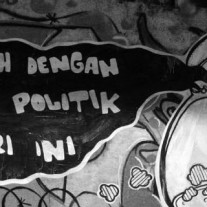 H DENGAN
POLITIK
RI INI